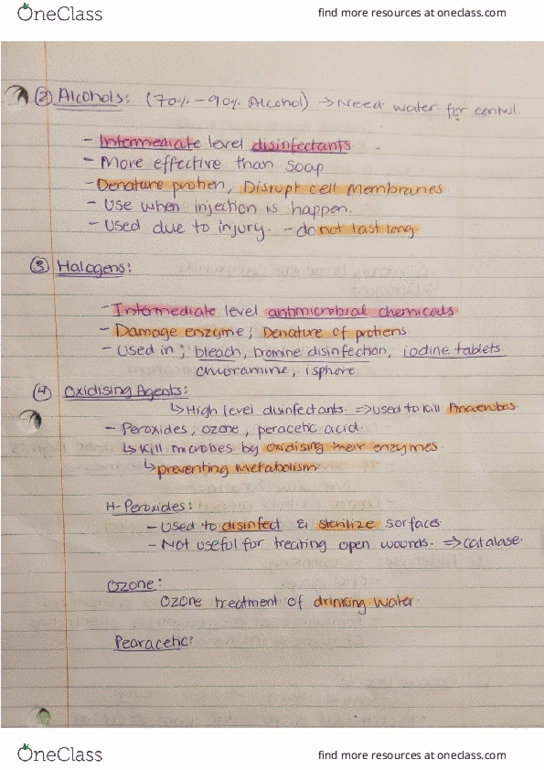 OneClass
find more resources at oneclass.com
② Alcohols: (70% - 90% Alcohol) → Need water for control.
- Intermediate level disinfectants
- More effective than soap
- Denature protien, Disrupt cell Membranes
- Use when injection is happen.
- Used due to injury. - do not last long.
③ Halogens:
- Intermediate level antimicrobial chemicals
- Damage enzyme; Denature of protiens
- Used in; bleach, bromine disinfection, iodine tablets
chloramine, isphore
④ Oxidising Agents:
↳ High level disinfectants ⇒ used to kill Anaerobes.
- Peroxides, ozone, peracetic acid.
↳ Kill microbes by oxidising their enzymes
↳ preventing Metabolism
H-Peroxides:
- Used to disinfect & sterilize surfaces
- Not useful for treating open wounds. ⇒ catalase.
Ozone:
Ozone treatment of drinking water
Pearacetic:
OneClass
find more resources at oneclass.com